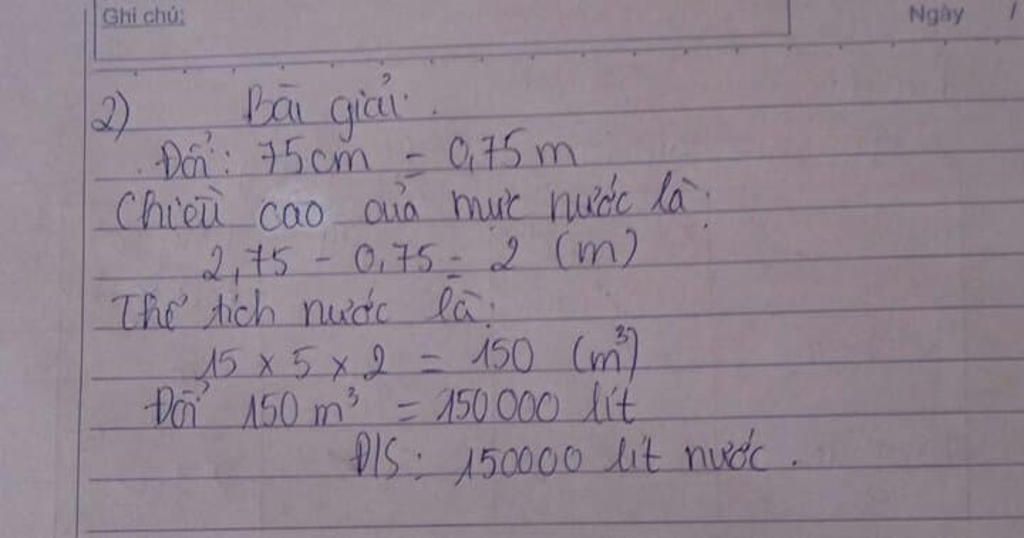 Ghi chú:
Ngày /
2) Bài giải:
Đổi: 75cm = 0,75m
Chiều cao của mực nước là:
2,75 - 0,75 = 2 (m)
Thể tích nước là:
15 x 5 x 2 = 150 (m³)
Đổi 150 m³ = 150000 lít
Đ/S: 150000 lít nước.